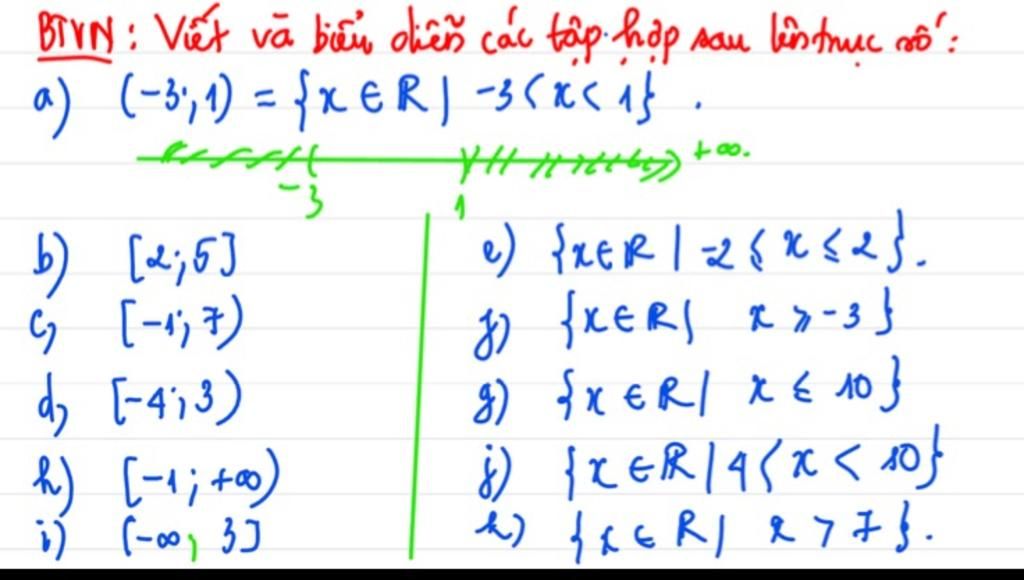 BTVN: Viết và biểu diễn các tập hợp sau lên trục số:
a) (-3; 1) = {x ∈ R | -3 < x < 1}.
-3 1 +∞.
b) [2; 5]
c) [-1; 7)
d) [-4; 3)
h) [-1; +∞)
i) (-∞; 3]
e) {x ∈ R | -2 ≤ x ≤ 2}.
f) {x ∈ R | x ≥ -3}
g) {x ∈ R | x ≤ 10}
j) {x ∈ R | 4 < x < 10}
k) {x ∈ R | x > 7}.